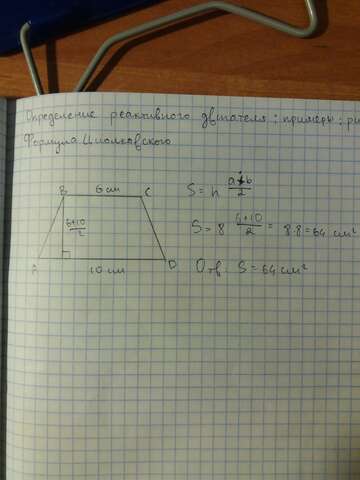 Определение реактивного двигателя; примеры; ри
Формула Циолковского
B 6 см C
S = h (a+b)/2
(6+10)/2
S = 8 (6+10)/2 = 8·8 = 64 см²
A 10 см D
Отв: S = 64 см²